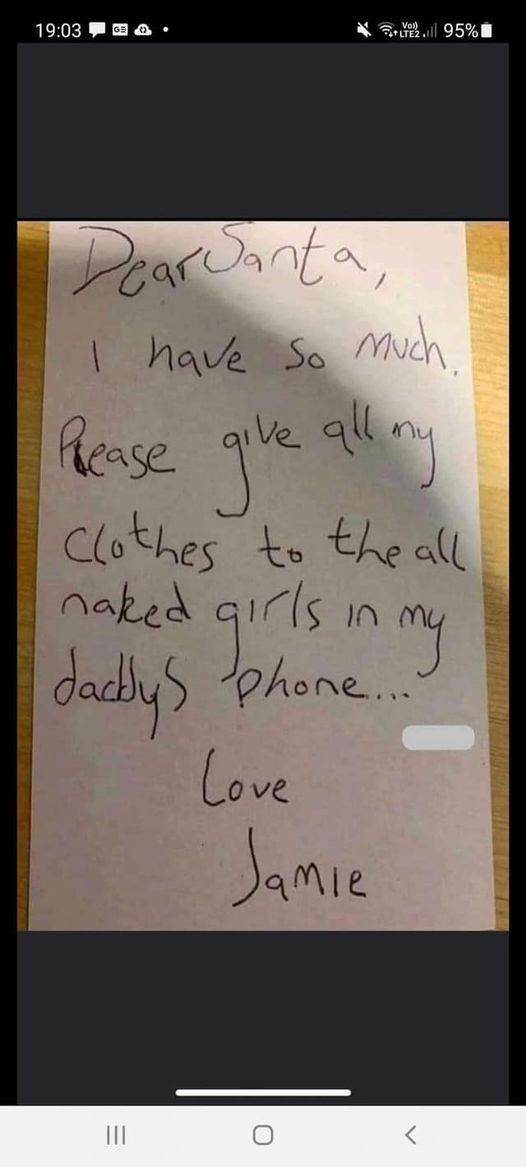 19:03
Vo))
LTE2
95%
Dear Santa,
I have so much.
Please give all my
clothes to the all
naked girls in my
daddys phone...
Love
Jamie